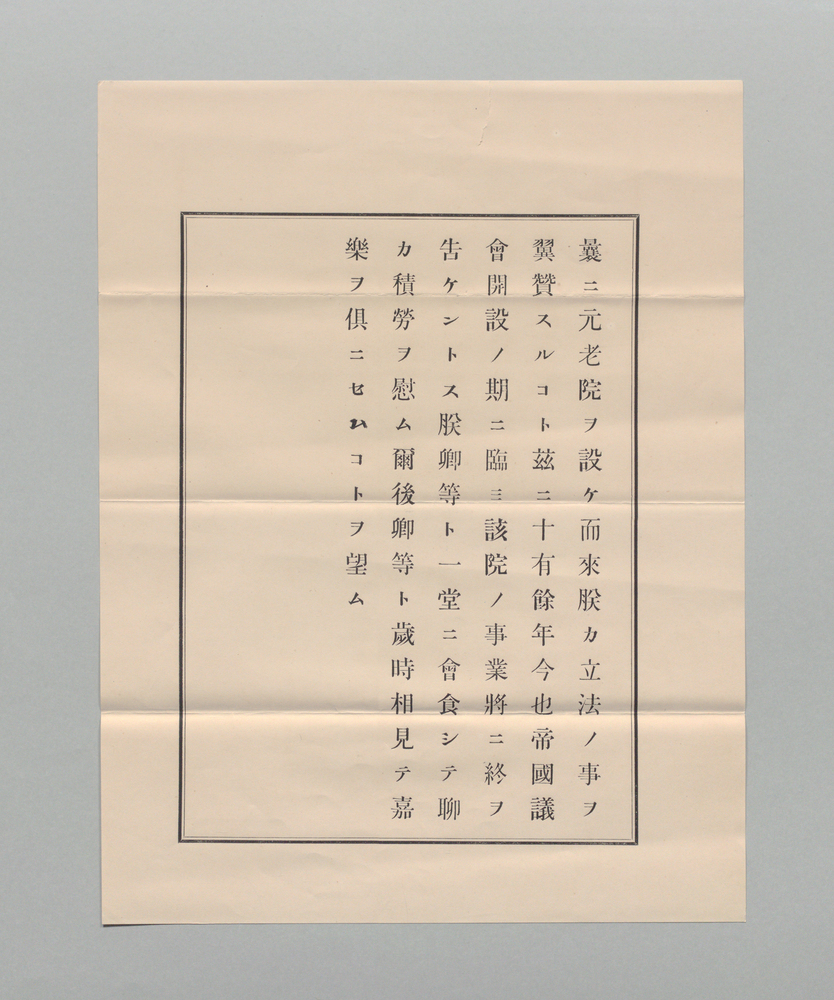 曩ニ元老院ヲ設ケ而來朕カ立法ノ事ヲ
翼賛スルコト茲ニ十有餘年今也帝國議
會開設ノ期ニ臨ミ該院ノ事業將ニ終ヲ
告ケントス朕卿等ト一堂ニ會食シテ聊
カ積勞ヲ慰ム爾後卿等ト歲時相見テ嘉
樂ヲ俱ニセムコトヲ望ム